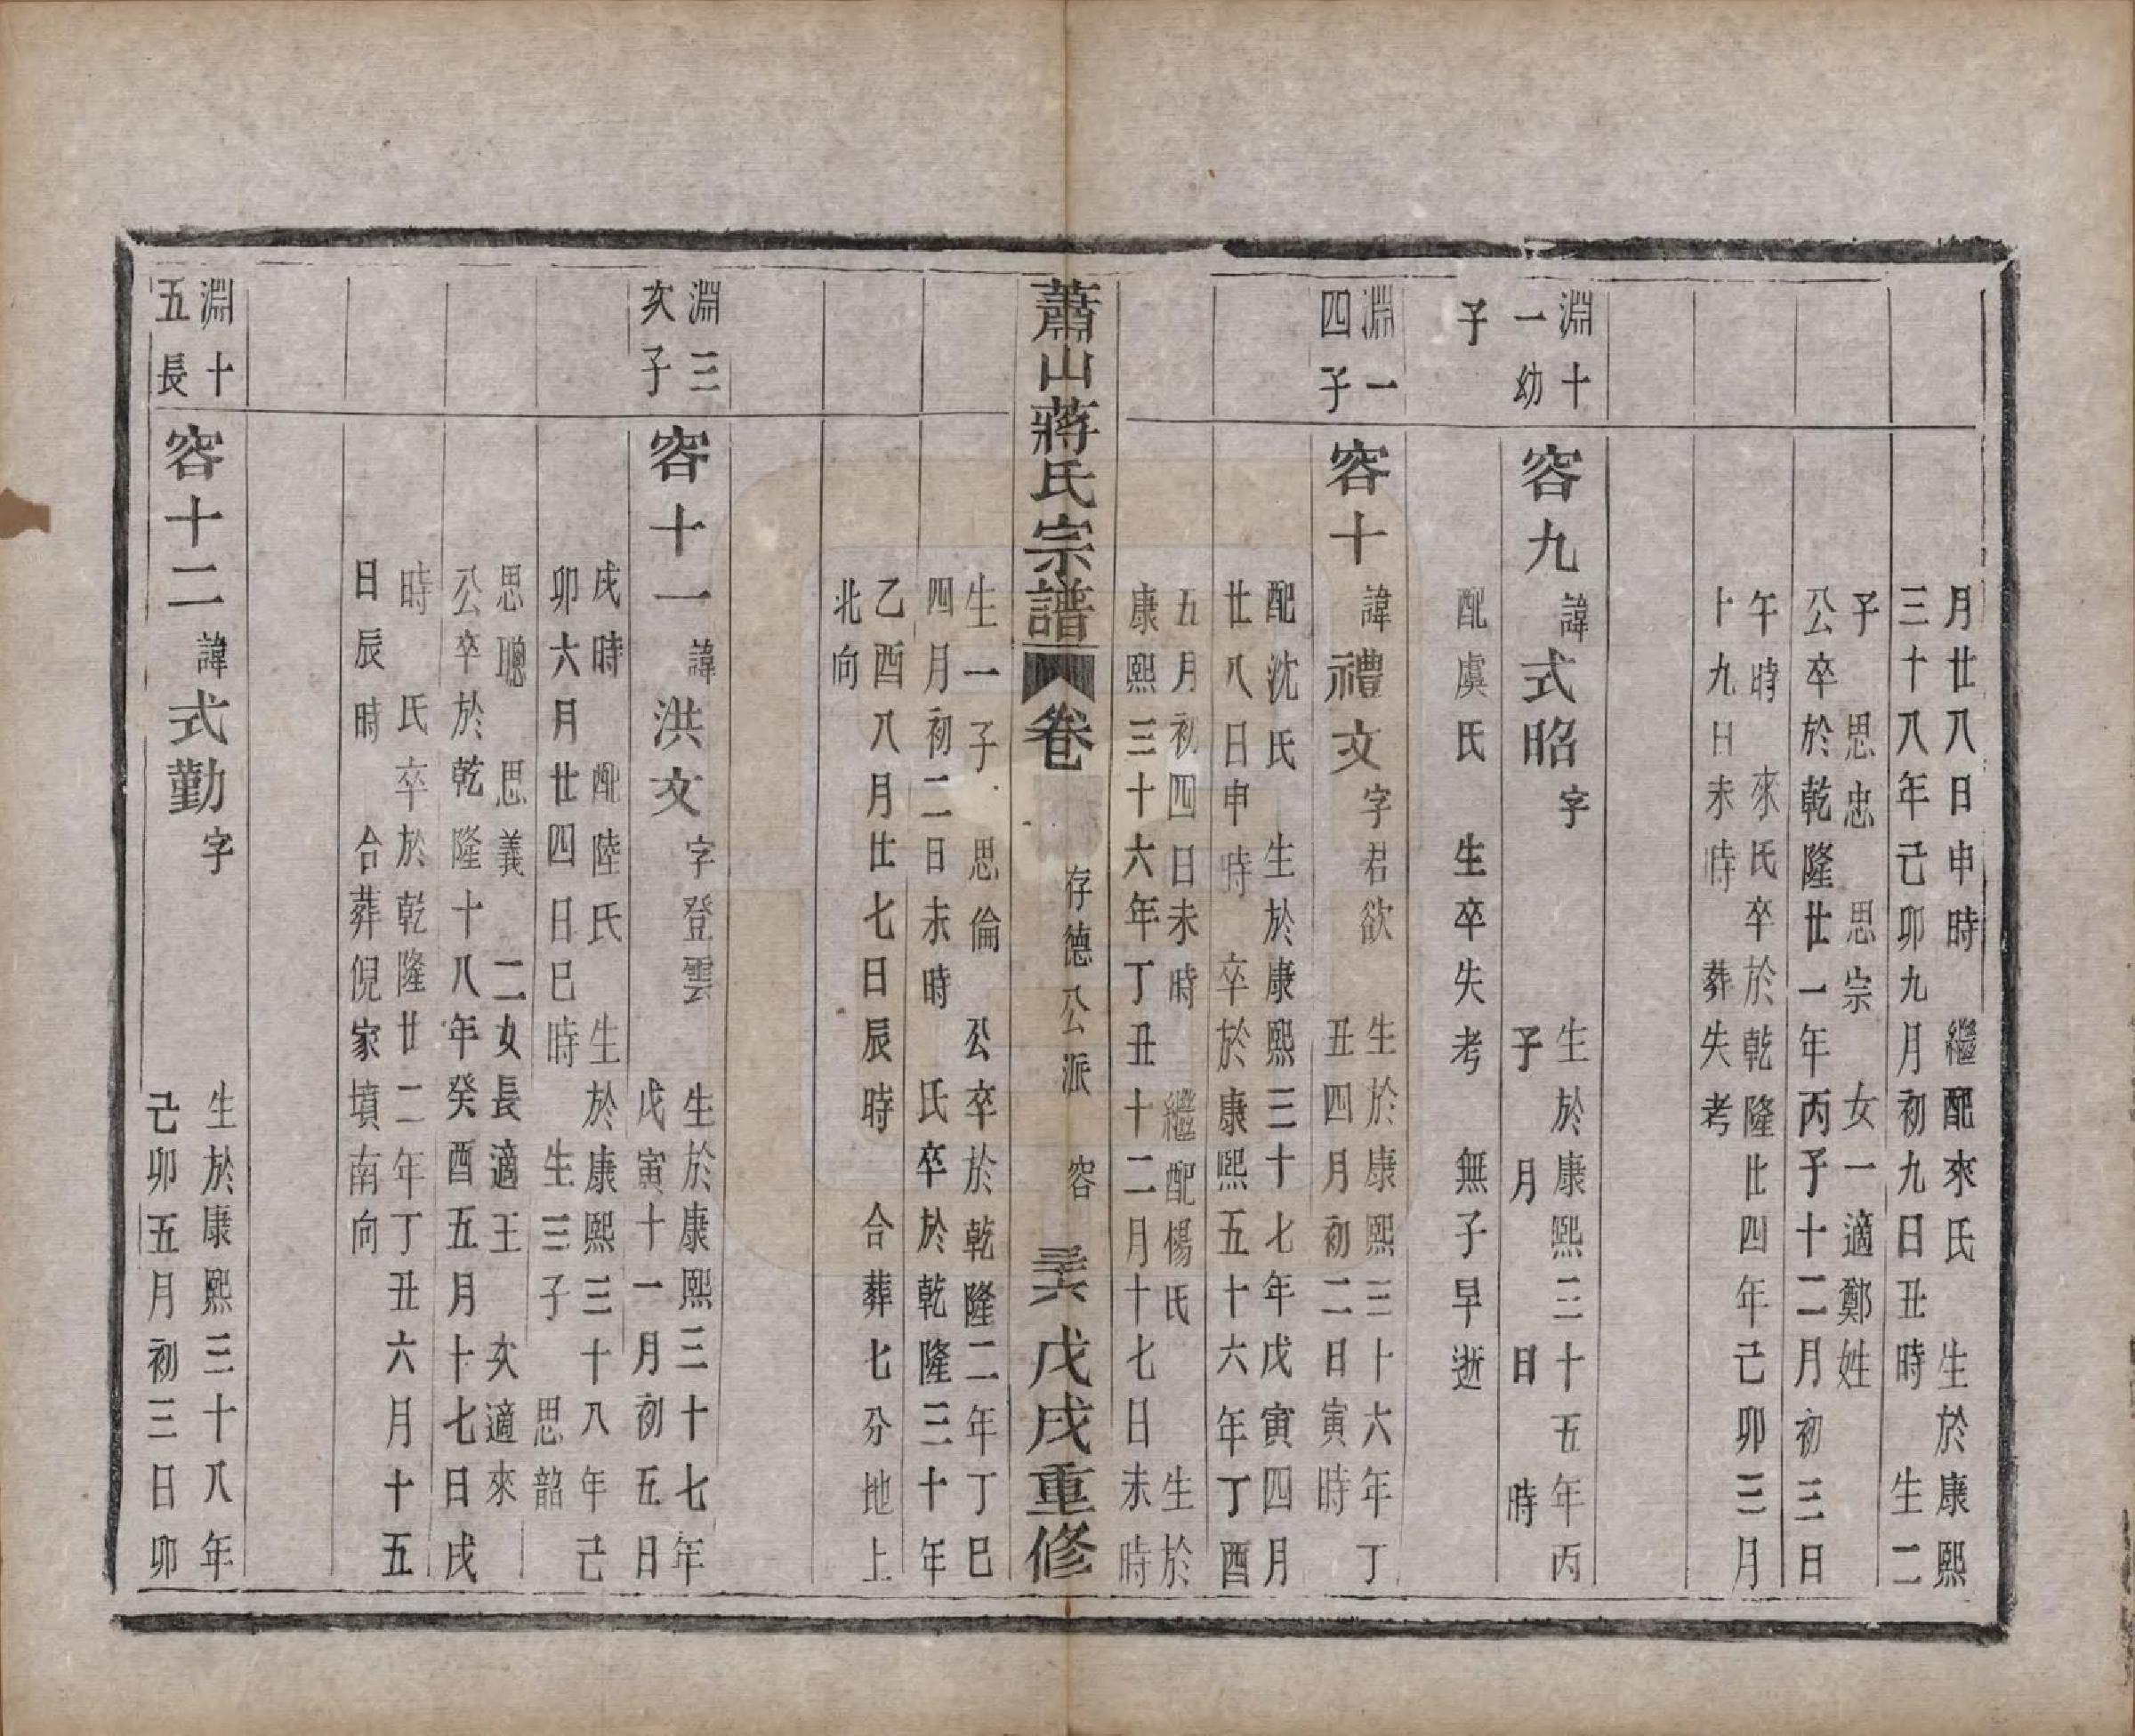 月廿八日申時　繼配來氏　生於康熙
三十八年己卯九月初九日丑時　生二
子　思忠　思宗　女一適鄭姓
公卒於乾隆廿一年丙子十二月初三日
午時　來氏卒於乾隆廿四年己卯三月
十九日未時　葬失考
淵十
一幼
子
容九　諱式昭字　生於康熙三十五年丙
子　月　日　時
配虞氏　生卒失考　無子早逝
淵一
四子
容十　諱禮文字君欲　生於康熙三十六年丁
丑四月初二日寅時
配沈氏　生於康熙三十七年戊寅四月
廿八日申時　卒於康熙五十六年丁酉
五月初四日未時　繼配楊氏　生於
康熙三十六年丁丑十二月十七日未時
蕭山蔣氏宗譜　卷　存德公派　容　三六　戊戌重修
生一子　思倫　公卒於乾隆二年丁巳
四月初二日未時　氏卒於乾隆三十年
乙酉八月廿七日辰時　合葬七分地上
北向
淵三
次子
容十一　諱洪文字登雲　生於康熙三十七年
戊寅十一月初五日
戌時　配陸氏　生於康熙三十八年己
卯六月廿四日巳時　生三子　思韶
思聰　思義　二女長適王　次適來
公卒於乾隆十八年癸酉五月十七日戌
時　氏卒於乾隆廿二年丁丑六月十五
日辰時　合葬倪家墳南向
淵十
五長
容十二　諱式勤字　生於康熙三十八年
己卯五月初三日卯